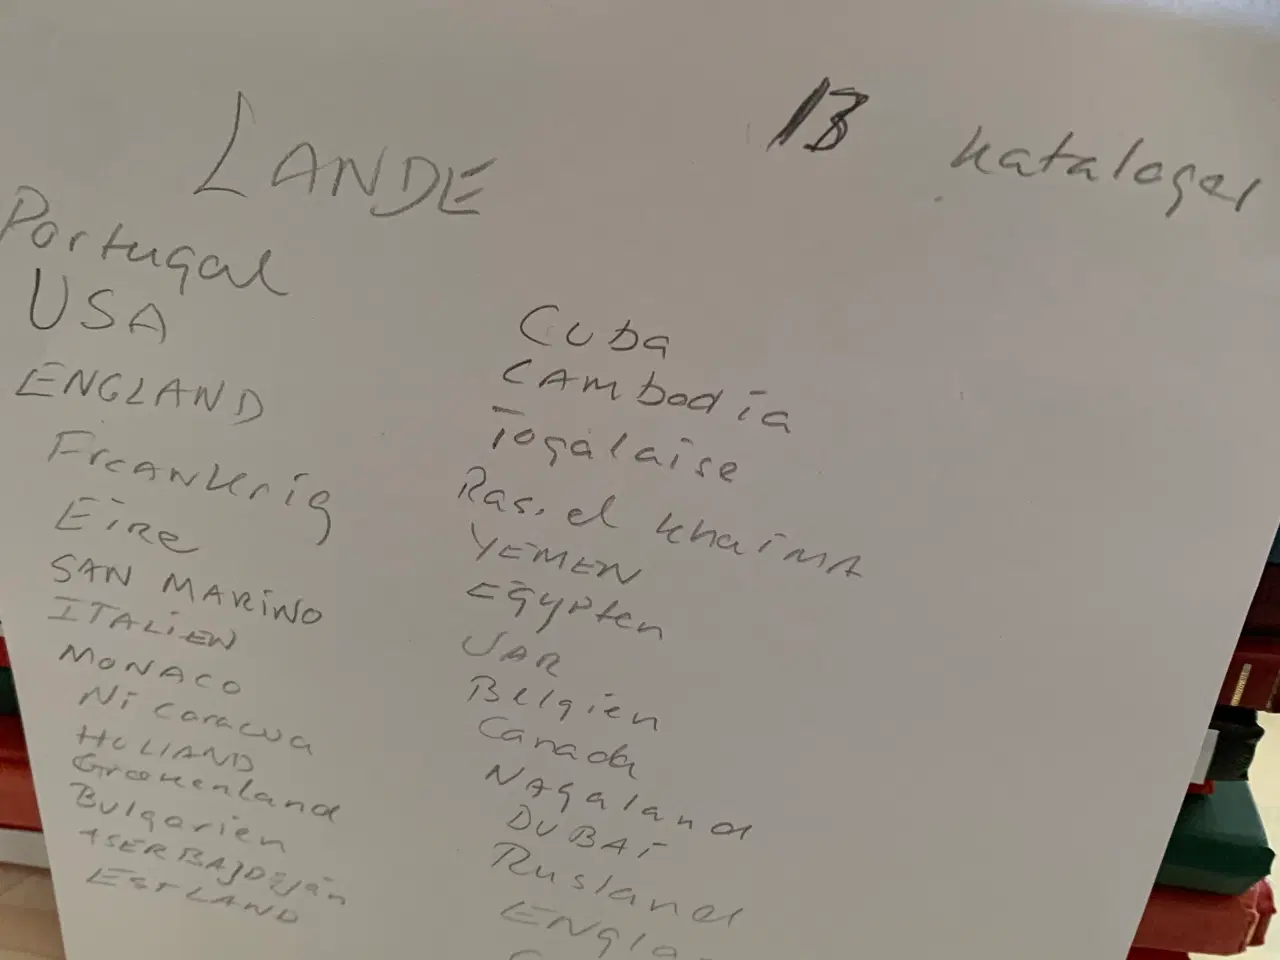 LANDE
13 kataloger
Portugal
USA
ENGLAND
Frcankrig
Eire
SAN MARINO
ITALIEN
MONACO
Nicaracua
HOLLAND
Groenenland
Bulgarien
ASERBAJDSJAN
ESTLAND
Cuba
CAMbodia
Togalaise
Ras. el khaiMA
YEMEN
Egypten
UAR
Belgien
Canada
NAgaland
DUBAI
Rusland